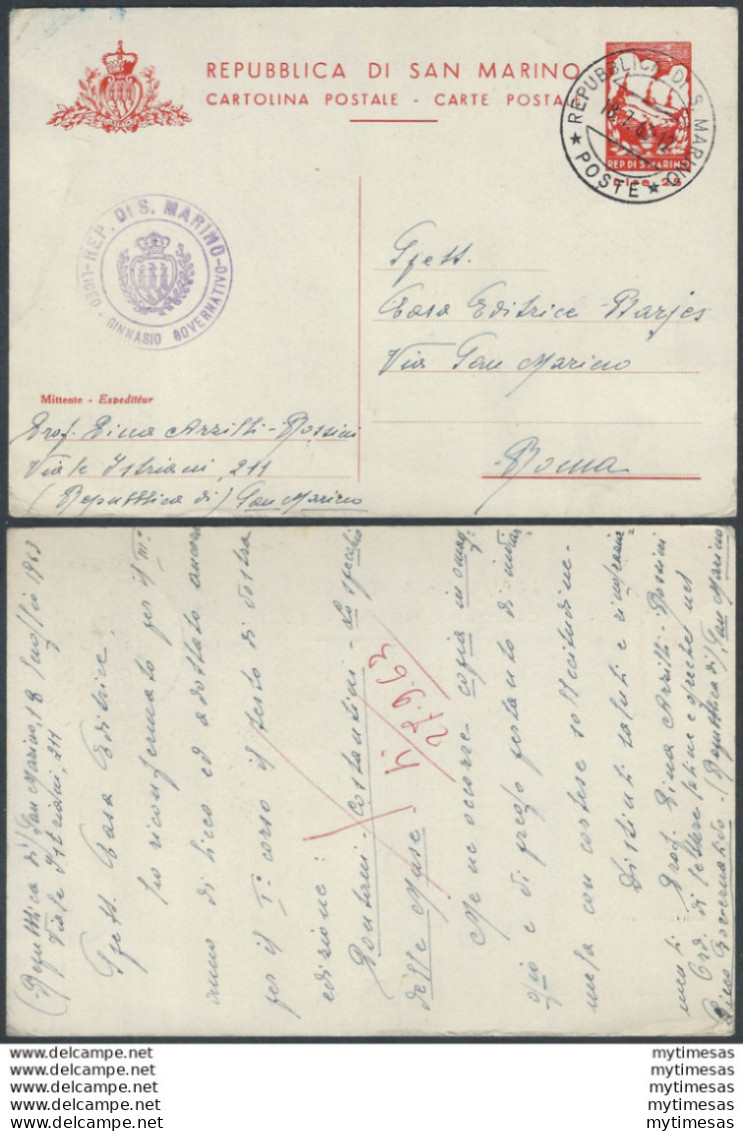 REPUBBLICA DI SAN MARINO
CARTOLINA POSTALE - CARTE POSTALE
REPUBBLICA DI S. MARINO
18.7.63
★ POSTE ★
REP. DI S. MARINO
Lire 25
REP. DI S. MARINO
LICEO - GINNASIO GOVERNATIVO
Spett.
Casa Editrice Barjes
Via San Marino
Roma
Mittente - Expéditeur
Prof. Pina Arzilli-Rossini
Viale Istriani, 211
(Repubblica di) San Marino
(Repubblica di) San Marino, 18 luglio 1963
Viale Istriani, 211
Spett. Casa Editrice,
ho riconfermato per il III°
anno di liceo ed adottato ancora
per il I° corso il testo di Vostra
edizione:
Pontani - Costantini - Lo specchio
delle Muse.
Me ne occorre copia in omag-
gio e di prego pertanto di inviar
mela con cortese sollecitudine.
Distinti saluti e ringrazia-
menti. Prof. Pina Arzilli-Rossini
Ord. di lettere latine e greche nel
Liceo Governativo. (Repubblica di) San Marino
27.9.63
www.delcampe.net
www.delcampe.net
www.delcampe.net
www.delcampe.net
www.delcampe.net
mytimesas
mytimesas
mytimesas
mytimesas
mytimesas